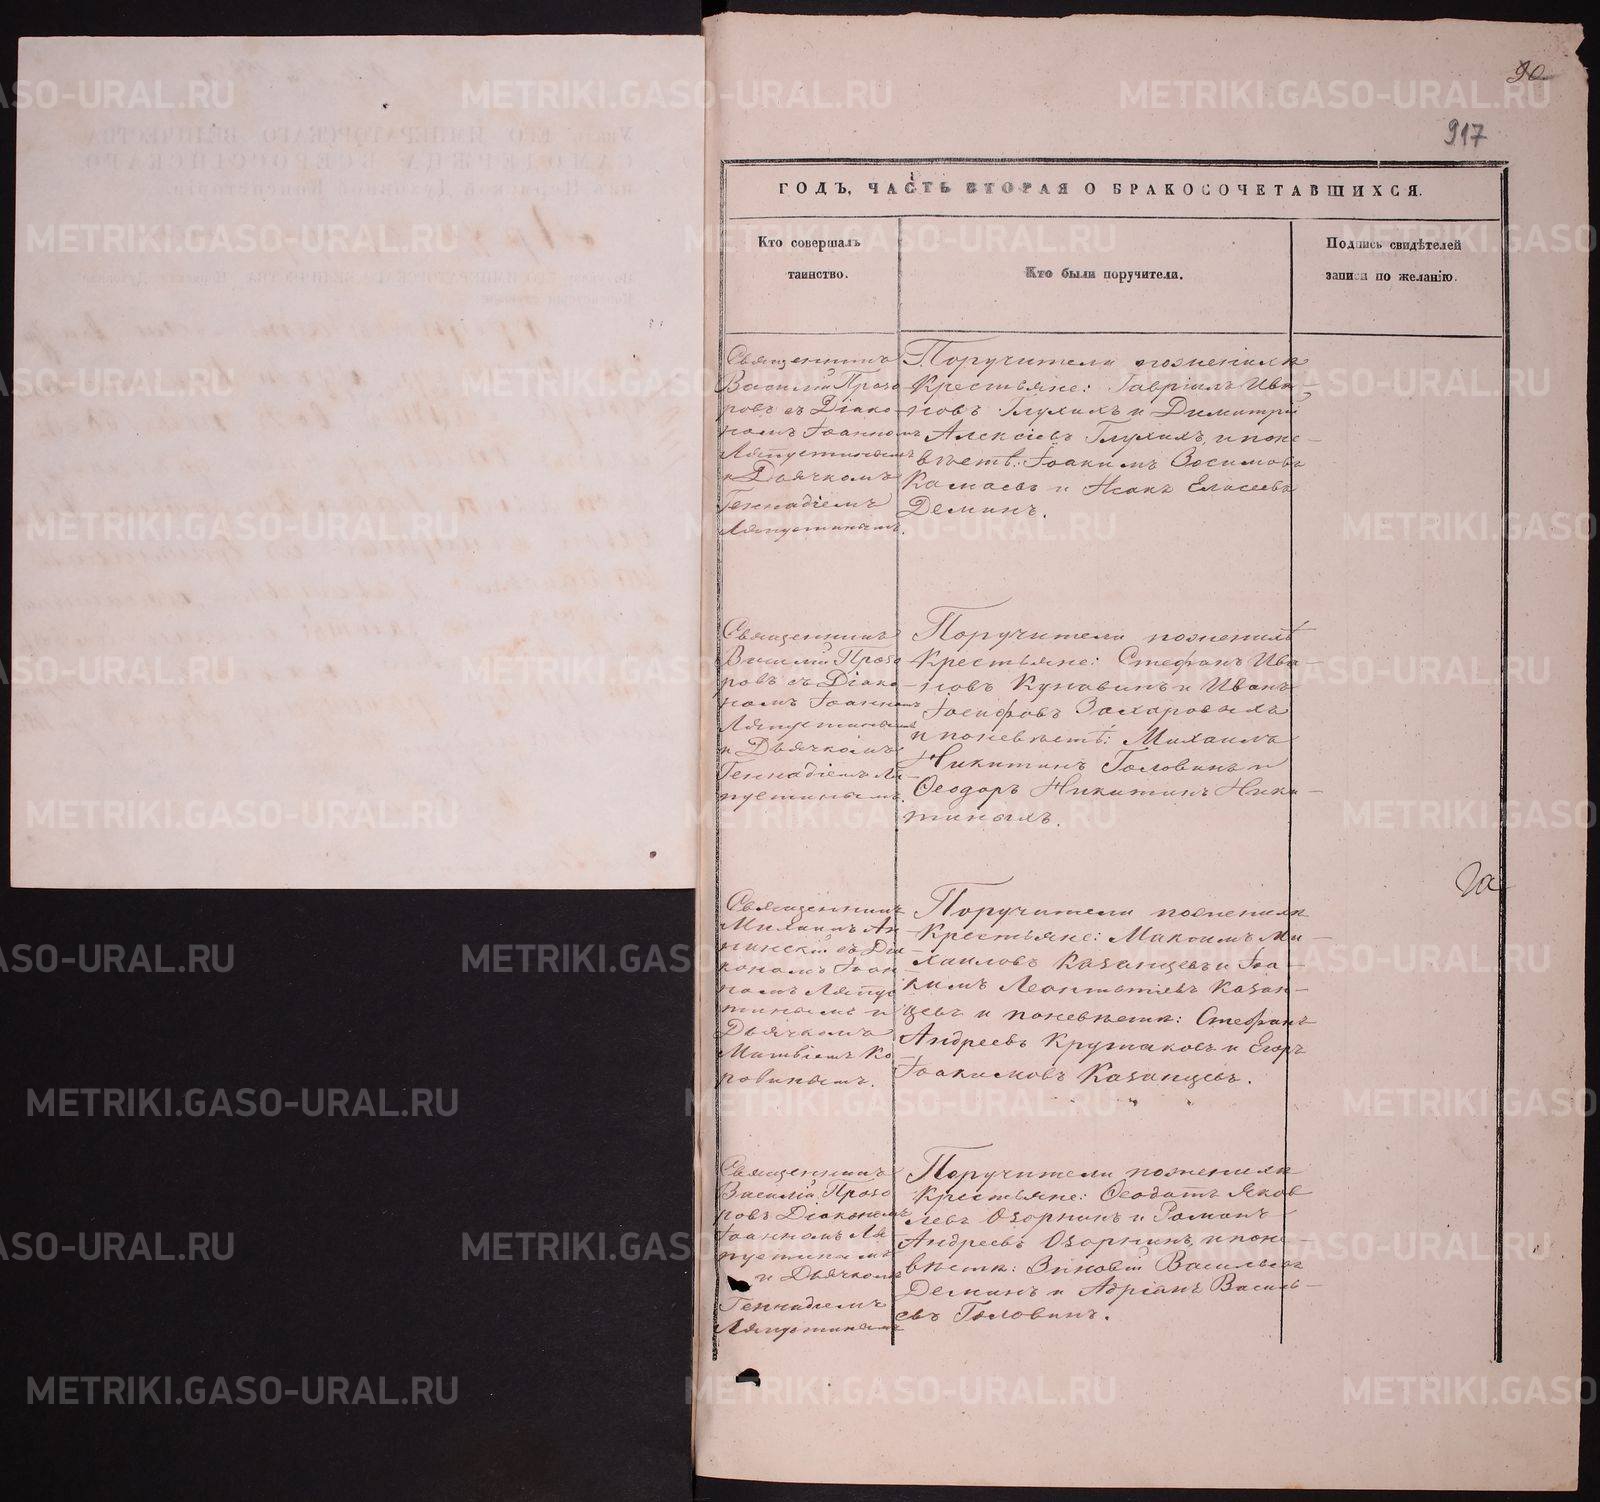 90
917
ГОДЪ, ЧАСТЬ ВТОРАЯ О БРАКОСОЧЕТАВШИХСЯ.
Кто совершалъ
таинство.
Кто были поручители.
Подпись свидѣтелей
записи по желанію.
Священникъ
Василій Прозо
ровъ съ Діако-
номъ Іоанномъ
Ляпустинымъ
и Дьячкомъ
Геннадіемъ
Ляпустинымъ.
Поручители по женихѣ
Крестьяне: Гавріилъ Ива-
новъ Глухихъ и Димитрій
Алексіевъ Глухихъ, и по не-
вѣстѣ: Іоакимъ Зосимовъ
Камаевъ и Исакъ Елисеевъ
Деминъ.
Священникъ
Василій Прозо
ровъ съ Діако-
номъ Іоанномъ
Ляпустинымъ
и Дьячкомъ
Геннадіемъ Ля-
пустинымъ.
Поручители по женихѣ
Крестьяне: Стефанъ Ива-
новъ Куновинъ и Иванъ
Іосифовъ Захаровыхъ
и по невѣстѣ: Михаилъ
Никитинъ Головинъ и
Ѳеодоръ Никитинъ Ники-
тиныхъ.
Священникъ
Михаилъ Ан-
нинскій съ Діа
кономъ Іоан
номъ Ляпус
тинымъ и
Дьячкомъ
Матвіемъ Ко
ровинымъ.
Поручители по женихѣ
Крестьяне: Максимъ Ми-
хаиловъ Казанцевъ и Іоа-
кимъ Леонтьевъ Казан-
цевъ и по невѣстѣ: Стефанъ
Андреевъ и Егоръ
Іоакимовъ Казанцевъ.
Священникъ
Василій Прозо
ровъ Діакономъ
Іоанномъ Ля
пустинымъ
и Дьячкомъ
Геннадіемъ
Ляпустинымъ
Поручители по женихѣ
Крестьяне: Ѳеодотъ Яков
левъ Озорнинъ и Романъ
Андреевъ Озорнинъ, и по не-
вѣстѣ: Зиновій Васильевъ
Деминъ и Адріанъ Василь-
евъ Головинъ.
METRIKI.GASO-URAL.RU